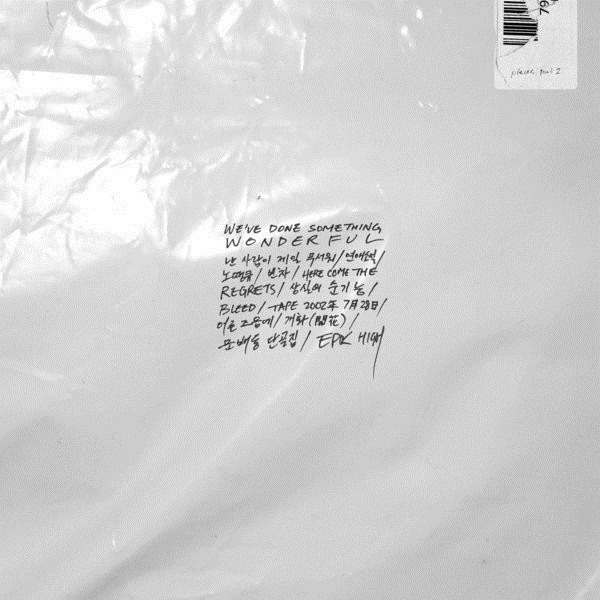 79
pieces, part 2
WE'VE DONE SOMETHING
WONDERFUL
난 사람이 제일 무서워/연애소설/
노땡큐/빈차/HERE COME THE
REGRETS/상실의 순기능/
BLEED/TAPE 2002年 7月28日/
어른 즈음에/개화(開花)/
문배동 단골집/EPIK HIGH